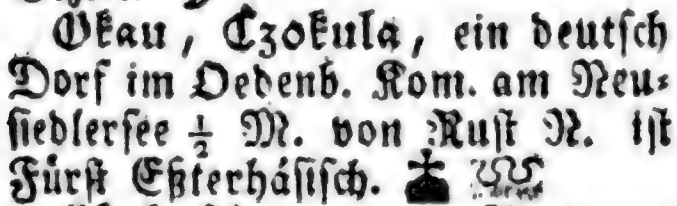 Okau, Czokula, ein deutsch
Dorf im Oedenb. Kom. am Neu-
siedlersee ½ M. von Rust N. ist
Fürst Eßterhásisch.